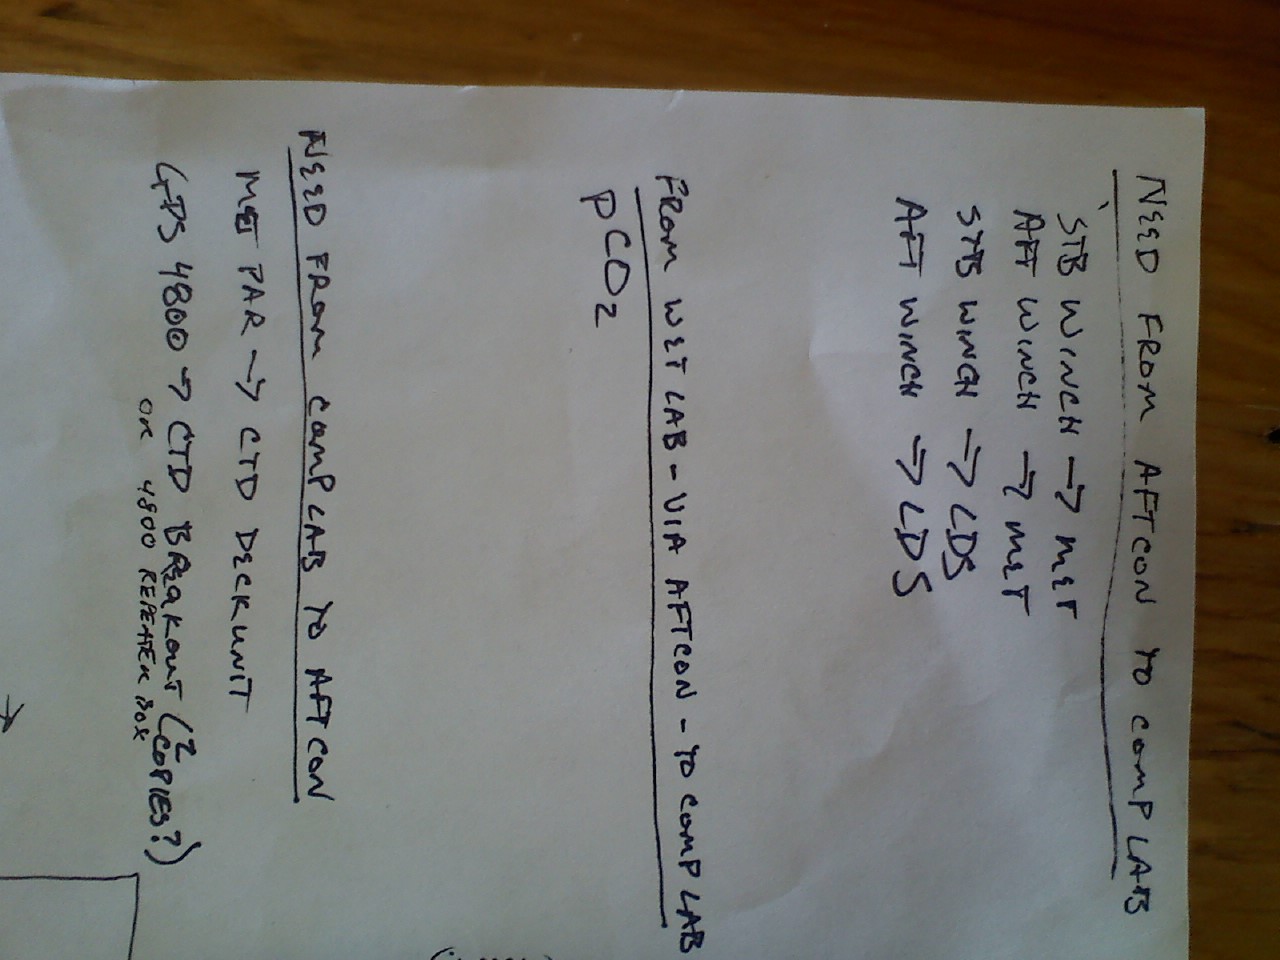 NEED FROM AFTCON TO COMP LAB
STB WINCH → MET
AFT WINCH → MET
STB WINCH → LDS
AFT WINCH → LDS
FROM WET LAB - VIA AFTCON - TO COMP LAB
PCO2
NEED FROM COMP LAB TO AFTCON
MET PAR → CTD DECKUNIT
GPS 4800 → CTD BREAKOUT (2 COPIES?)
OR 4800 REPEATER BOX